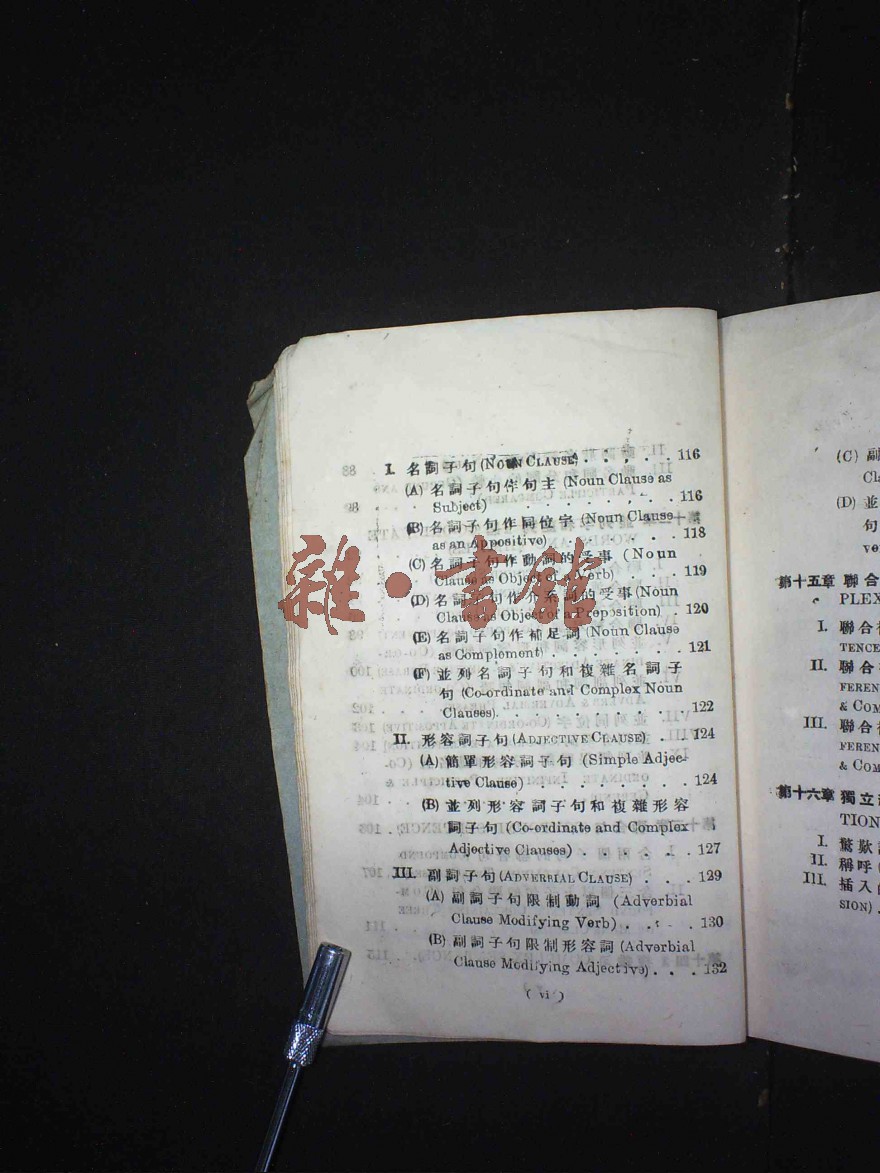 I. 名詞子句 (NOUN CLAUSE) . . . . . . 116
(A) 名詞子句作句主 (Noun Clause as
Subject) . . . . . . . . . . 116
(B) 名詞子句作同位字 (Noun Clause
as an Appositive) . . . . . . . 118
(C) 名詞子句作動詞的受事 (Noun
Clause as Object of a Verb) . . . . 119
(D) 名詞子句作介系詞的受事 (Noun
Clause as Object of a Preposition) . . 120
(E) 名詞子句作補足詞 (Noun Clause
as Complement) . . . . . . . . 121
(F) 並列名詞子句和複雜名詞子
句 (Co-ordinate and Complex Noun
Clauses) . . . . . . . . . . 122
II. 形容詞子句 (ADJECTIVE CLAUSE) . . . 124
(A) 簡單形容詞子句 (Simple Adjec-
tive Clause) . . . . . . . . . 124
(B) 並列形容詞子句和複雜形容
詞子句 (Co-ordinate and Complex
Adjective Clauses) . . . . . . . 127
III. 副詞子句 (ADVERBIAL CLAUSE) . . . 129
(A) 副詞子句限制動詞 (Adverbial
Clause Modifying Verb) . . . . 130
(B) 副詞子句限制形容詞 (Adverbial
Clause Modifying Adjective) . . . 132
( vi )
(C) 副
Cla
(D) 並
句
ver
第十五章 聯合
PLEX
I. 聯合
TENCE
II. 聯合
FEREN
& COM
III. 聯合
FEREN
& COM
第十六章 獨立
TION
I. 驚歎
II. 稱呼
III. 插入
SION) .
雜·書館